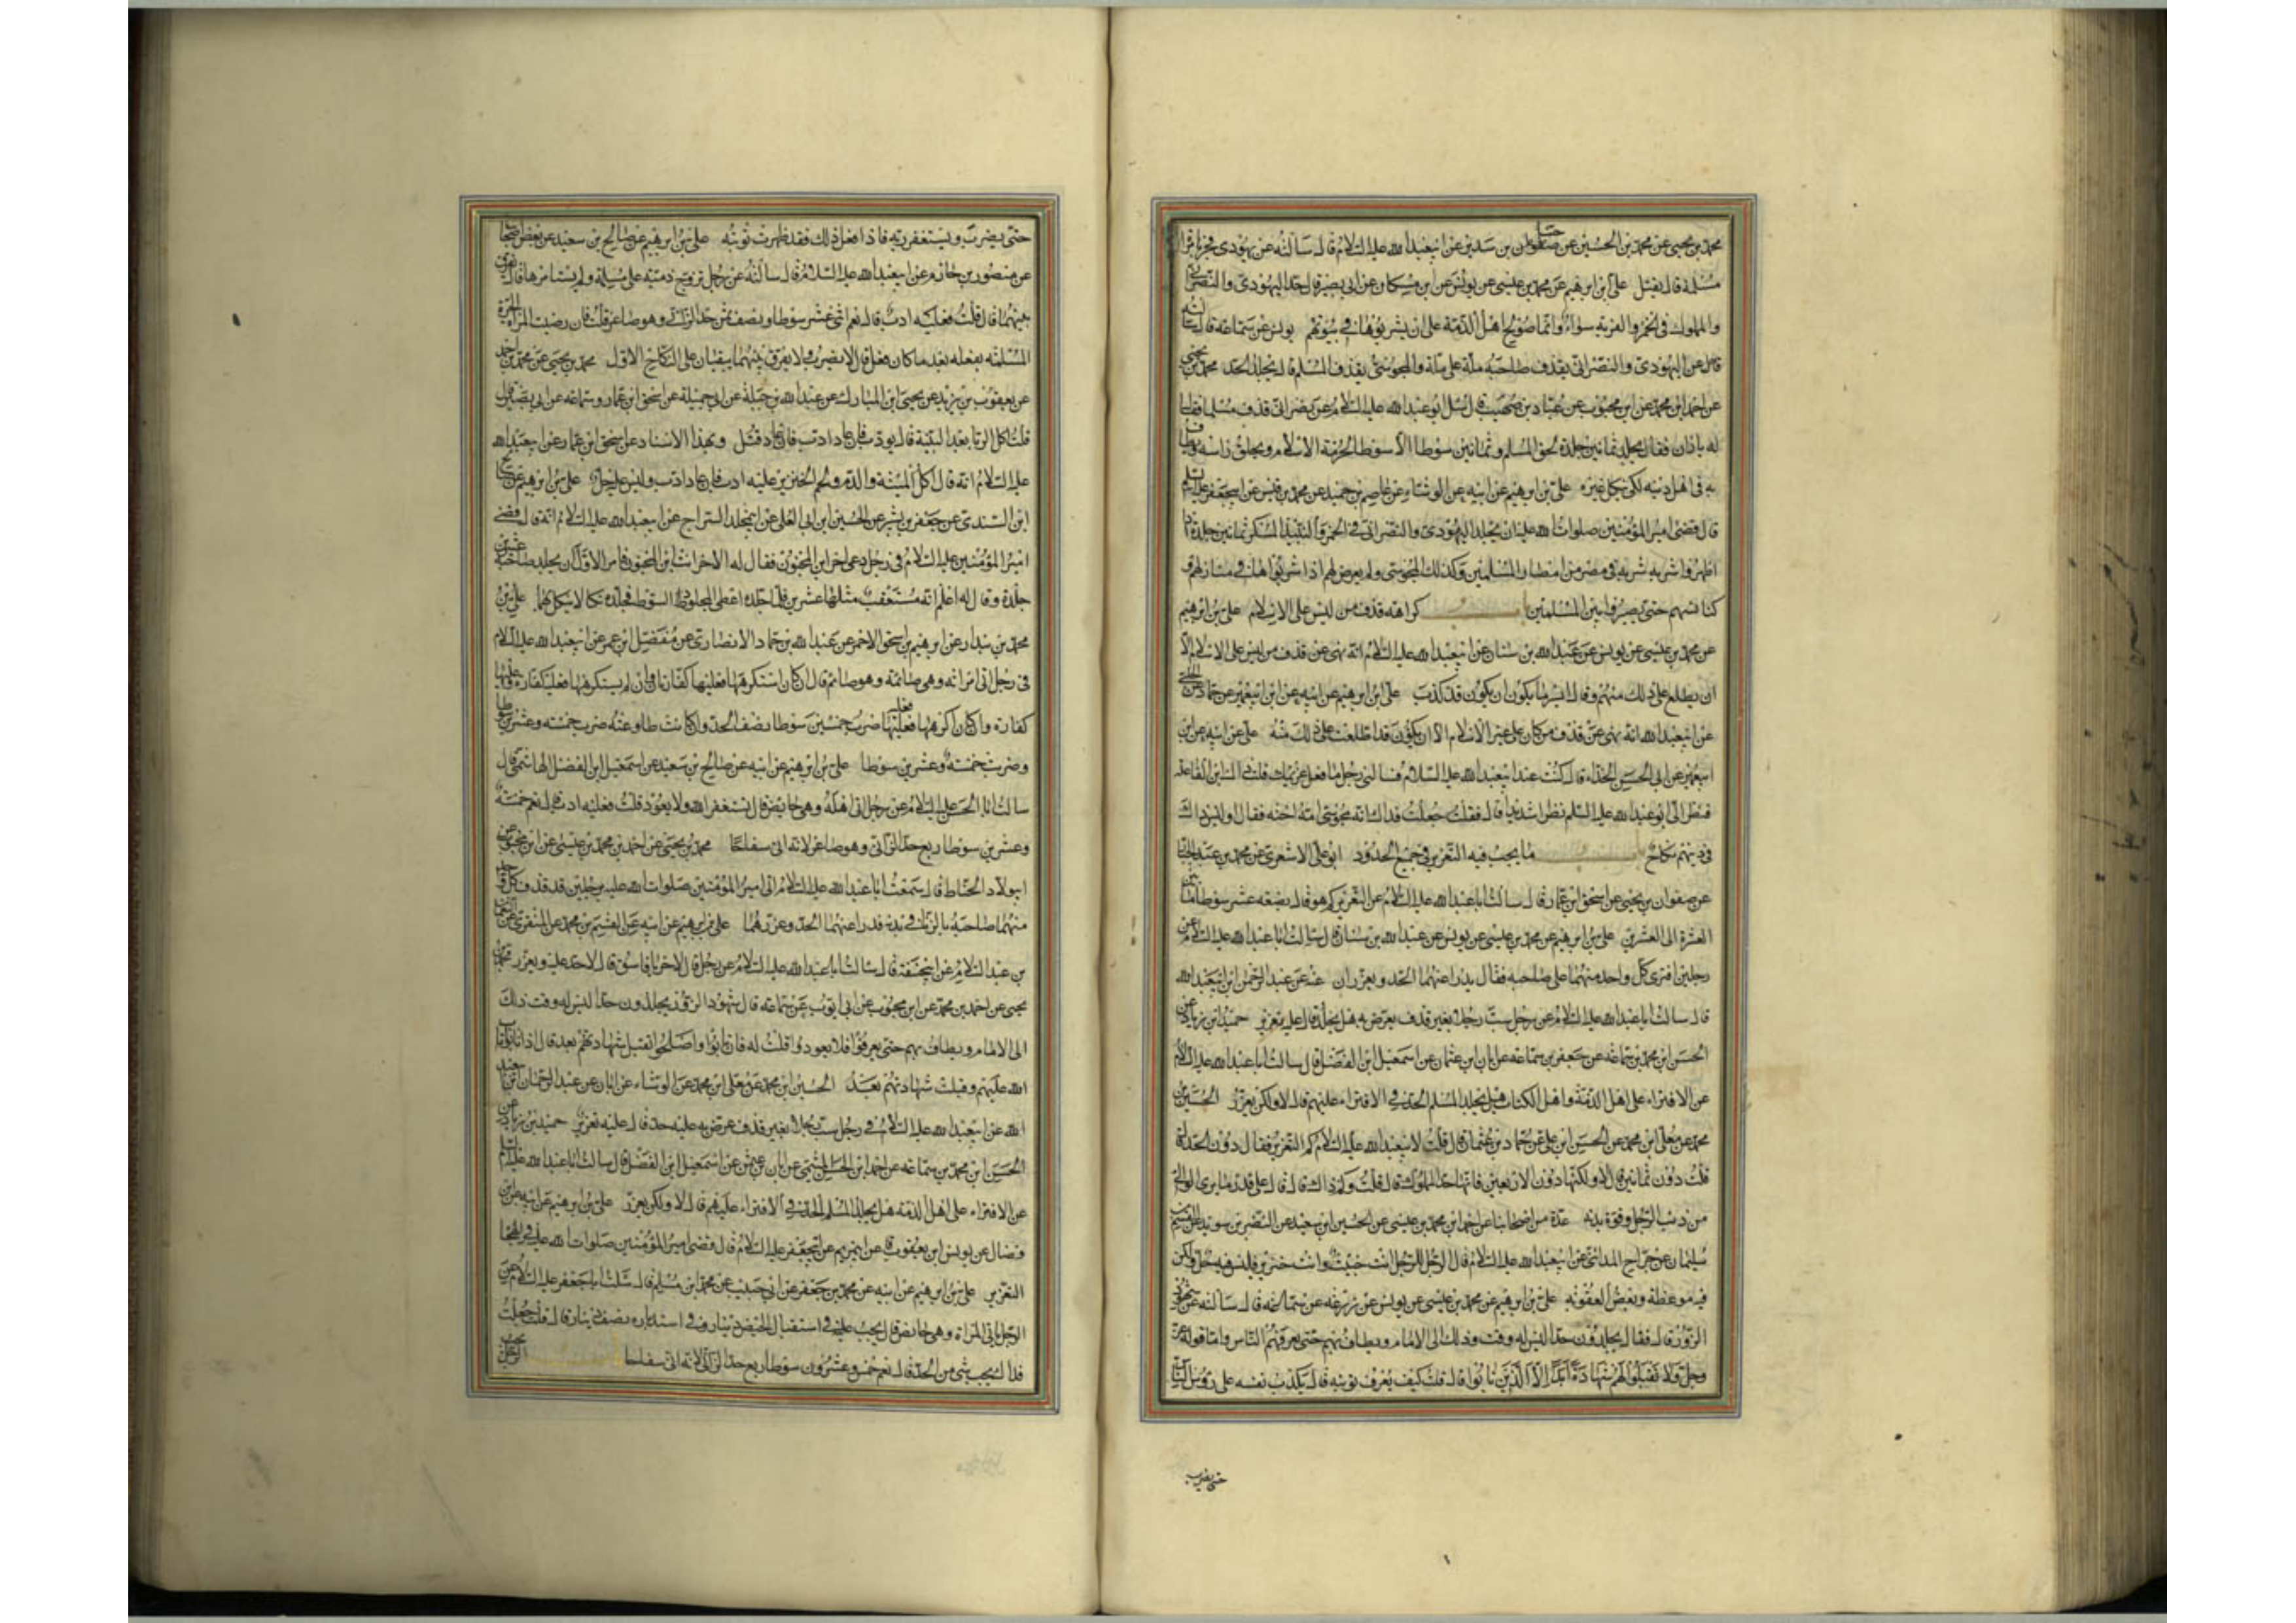 محمد بن يحيى عن محمد بن الحسين عن حنان بن سدير عن ابيعبدالله عليه السلام قال سالته عن يهودى فجر بامراة
مسلمة قال يقتل على ابن ابرهيم عن محمد بن عيسى عن يونس عن ابن مسكان عن ابى بصير قال حد اليهودى والنصرانى
والمملوك فى الخمر والفرية سواء وانما صولح اهل الذمة على ان يشربوها فى بيوتهم يونس عن سماعة قال سالته
عن اليهودى والنصرانى يقذف صاحبه ملة على ملة والمجوسى يقذف المسلم قال يجلد الحد محمد بن يحيى
عن احمد ابن محمد عن ابن محبوب عن عباد بن صهيب قال سئل ابو عبدالله عليه السلام عن نصرانى قذف مسلما فقال
له يا زان فقال يجلد ثمانين جلدة لحق المسلم وثمانين سوطا الا سوطا لحرمة الاسلام ويحلق راسه ويطاف
به فى اهل دينه لكى ينكل غيره على بن ابرهيم عن ابيه عن الوشاء عن عاصم بن حميد عن محمد بن قيس عن ابيجعفر عليه السلم
قال قضى امير المؤمنين صلوات الله عليه ان يجلد اليهودى والنصرانى فى الخمر والنبيذ المسكر ثمانين جلدة اذا
اظهروا شربه فى مصر من امصار المسلمين وكذلك المجوسى ولم يعرض لهم اذا شربوا ها فى منازلهم و
كنائسهم حتى يصيروا بين المسلمين باب كراهة قذف من ليس على الاسلام على بن ابرهيم
عن محمد بن عيسى عن يونس عن عبدالله بن سنان عن ابيعبدالله عليه السلام انه نهى عن قذف من ليس على الاسلام الا
ان يطلع على ذلك منهم وقال ايسر ما يكون ان يكون قد كذب على ابن ابرهيم عن ابيه عن ابن ابيعمير عن حماد عن الحلبى
عن ابيعبدالله انه نهى عن قذف من كان على غير الاسلام الا ان يكون قد اطلعت على ذلك منه على عن ابيه عن ابن
ابيعمير عن ابى الحسن الحذاء قال كنت عند ابيعبدالله عليه السلام فسالنى رجل ما فعل غريمك قلت ذاك ابن الفاعلة
فنظر الى ابو عبدالله عليه السلم نظرا شديدا قال فقلت جعلت فداك انه مجوسى امه اخته فقال او ليس ذلك
فى دينهم نكاح باب ما يجب فيه التعزير فى جميع الحدود ابو على الاشعرى عن محمد بن عبد الجبار
عن صفوان بن يحيى عن اسحق ابن عمار قال سالت ابا عبدالله عليه السلام عن التعزير كم هو قال بضعة عشر سوطا ما بين
العشرة الى العشرين على بن ابرهيم عن محمد بن عيسى عن يونس عن عبدالله بن سنان قال سالت ابا عبدالله عليه السلام عن
رجلين افترى كل واحد منهما على صاحبه فقال يدرا عنهما الحد ويعزران عنه عن عبد الرحمن ابن ابيعبدالله
قال سالت ابا عبدالله عليه السلام عن رجل سب رجلا بغير قذف يعرض به هل يجلد قال عليه تعزير حميد ابن زياد عن
الحسن ابن محمد بن سماعة عن جعفر بن سماعة عن ابان ابن عثمان عن اسمعيل ابن الفضل قال سالت ابا عبدالله عليه السلام
عن الافتراء على اهل الذمة واهل الكتاب هل يجلد المسلم الحد فى الافتراء عليهم قال لا ولكن يعزر الحسين بن
محمد عن معلى ابن محمد عن الحسن ابن على عن حماد بن عثمان قال قلت لابيعبدالله عليه السلام كم التعزير فقال دون الحد قال
قلت دون ثمانين قال لا ولكنها دون الاربعين فانها حد المملوك قال قلت وكم ذاك قال قال على قدر ما يرى الوالى
من ذنب الرجل وقوة بدنه عدة من اصحابنا عن احمد ابن محمد بن عيسى عن الحسين ابن سعيد عن النضر بن سويد عن القسم بن
سليمان عن جراح المدائنى عن ابيعبدالله عليه السلام قال اذا قال الرجل للرجل انت خبيث وانت خنزير فليس فيه حد ولكن
فيه موعظة وبعض العقوبة على بن ابرهيم عن محمد بن عيسى عن يونس عن زرعة عن سماعة قال سالته عن شهود
الزور قال فقال يجلدون حدا ليس له وقت وذلك الى الامام ويطاف بهم حتى يعرفهم الناس واما قوله عز
وجل ولا تقبلوا لهم شهادة ابدا الا الذين تابوا قال قلت كيف يعرف توبته قال يكذب نفسه على رؤس الناس
حتى يضرب
حتى يضرب ويستغفر ربه فاذا فعل ذلك فقد ظهرت توبته على بن ابرهيم عن صالح بن سعيد عن بعض اصحابنا
عن منصور بن حازم عن ابيعبدالله عليه السلام قال سالته عن رجل تزوج ذمية على مسلمة ولم يستامرها قال يفرق
بينهما قال قلت فعليه ادب قال نعم اثنى عشر سوطا ونصف ثمن حد الزانى وهو صاغر قلت فان رضيت المراة الحرة
المسلمة بفعله بعد ما كان فعل قال لا يضرب ولا يفرق بينهما يبقيان على النكاح الاول محمد بن يحيى عن محمد بن احمد
عن يعقوب بن يزيد عن يحيى ابن المبارك عن عبدالله بن جبلة عن ابى جميلة عن اسحق ابن عمار وسماعة عن ابى بصير قال
قلت اكل الربا بعد البينة قال يودب فان عاد ادب فان عاد قتل وبهذا الاسناد عن اسحق ابن عمار عن ابيعبدالله
عليه السلام انه قال اكل الميتة والدم ولحم الخنزير عليه ادب فان عاد ادب وليس عليه حد على بن ابرهيم عن صالح
ابن السندى عن جعفر بن بشير عن الحسين ابن ابى العلى عن ابيمخلد السراج عن ابيعبدالله عليه السلام انه قال قضى
امير المؤمنين عليه السلام فى رجل دعى اخر ابن المجنون فقال له الاخر انت ابن المجنون فامر الاول ان يجلد صاحبه عشرين
جلدة وقال له اعلم انه مستعقب مثلها عشرين فلما جلده اعطى المجلود السوط فجلده نكالا ينكل بهما على بن
محمد بن بندار عن ابرهيم بن اسحق الاحمر عن عبدالله بن حماد الانصارى عن مفضل ابن عمر عن ابيعبدالله عليه السلام
فى رجل اتى امراته وهى صائمة وهو صائم قال ان كان استكرهها فعليه كفارتان وان لم يستكرهها فعليه كفارة وعليها
كفارة وان كان اكرهها فعليه ضرب خمسين سوطا نصف الحد وان كانت طاوعته ضرب خمسة وعشرين سوطا
وضربت خمسة وعشرين سوطا على بن ابرهيم عن ابيه عن صالح بن سعيد عن اسمعيل ابن الفضل الهاشمى قال
سالت ابا الحسن عليه السلام عن رجل اتى اهله وهى حايض قال يستغفر الله ولا يعود قلت فعليه ادب قال نعم خمسة
وعشرين سوطا ربع حد الزانى وهو صاغر لانه اتى سفاحا محمد بن يحيى عن احمد بن محمد بن عيسى عن ابن محبوب عن
ابيولاد الحناط قال سمعت ابا عبدالله عليه السلام اتى امير المؤمنين صلوات الله عليه برجلين قد قذف كل واحد
منهما صاحبه بالزنا فى بدنه فدرا عنهما الحد وعزرهما على بن ابرهيم عن ابيه عن القسم بن محمد عن المنقرى عن النعمان
بن عبد السلام عن ابيحنيفة قال سالت ابا عبدالله عليه السلام عن رجل قال لاخر يا فاسق قال لا حد عليه ويعزر محمد بن
يحيى عن احمد بن محمد عن ابن محبوب عن ابى ايوب عن سماعة قال شهود الزور يجلدون حدا ليس له وقت ذلك
الى الامام ويطاف بهم حتى يعرفوا فلا يعودوا قلت له فان تابوا واصلحوا تقبل شهادتهم بعد قال اذا تابوا تاب
الله عليهم وقبلت شهادتهم بعد الحسين ابن محمد عن معلى ابن محمد عن الوشاء عن ابان عن عبد الرحمن ابن ابيعبد
الله عن ابيعبدالله عليه السلام فى رجل سب رجلا بغير قذف عرض به عليه حد قال عليه تعزير حميد بن زياد عن
الحسن ابن محمد بن سماعة عن احمد ابن الحسن الميثمى عن ابان بن عثمن عن اسمعيل ابن الفضل قال سالت ابا عبدالله عليه السلم
عن الافتراء على اهل الذمة هل يجلد المسلم الحد فى الافتراء عليهم قال لا ولكن يعزر على بن ابرهيم عن ابيه عن ابن
فضال عن يونس ابن يعقوب عن ابيمريم عن ابيجعفر عليه السلام قال قضى امير المؤمنين صلوات الله عليه فى الهجا
التعزير على بن ابرهيم عن ابيه عن محمد بن جعفر عن ابى حبيب عن محمد ابن مسلم قال سئلت ابا جعفر عليه السلام عن
الرجل ياتى المراة وهى حايض قال يجب عليه فى استقبال الحيض دينار وفى استدباره نصف دينار قال قلت جعلت
فداك يجب شى من الحد قال نعم خمس وعشرون سوطا ربع حد الزانى لانه اتى سفاحا